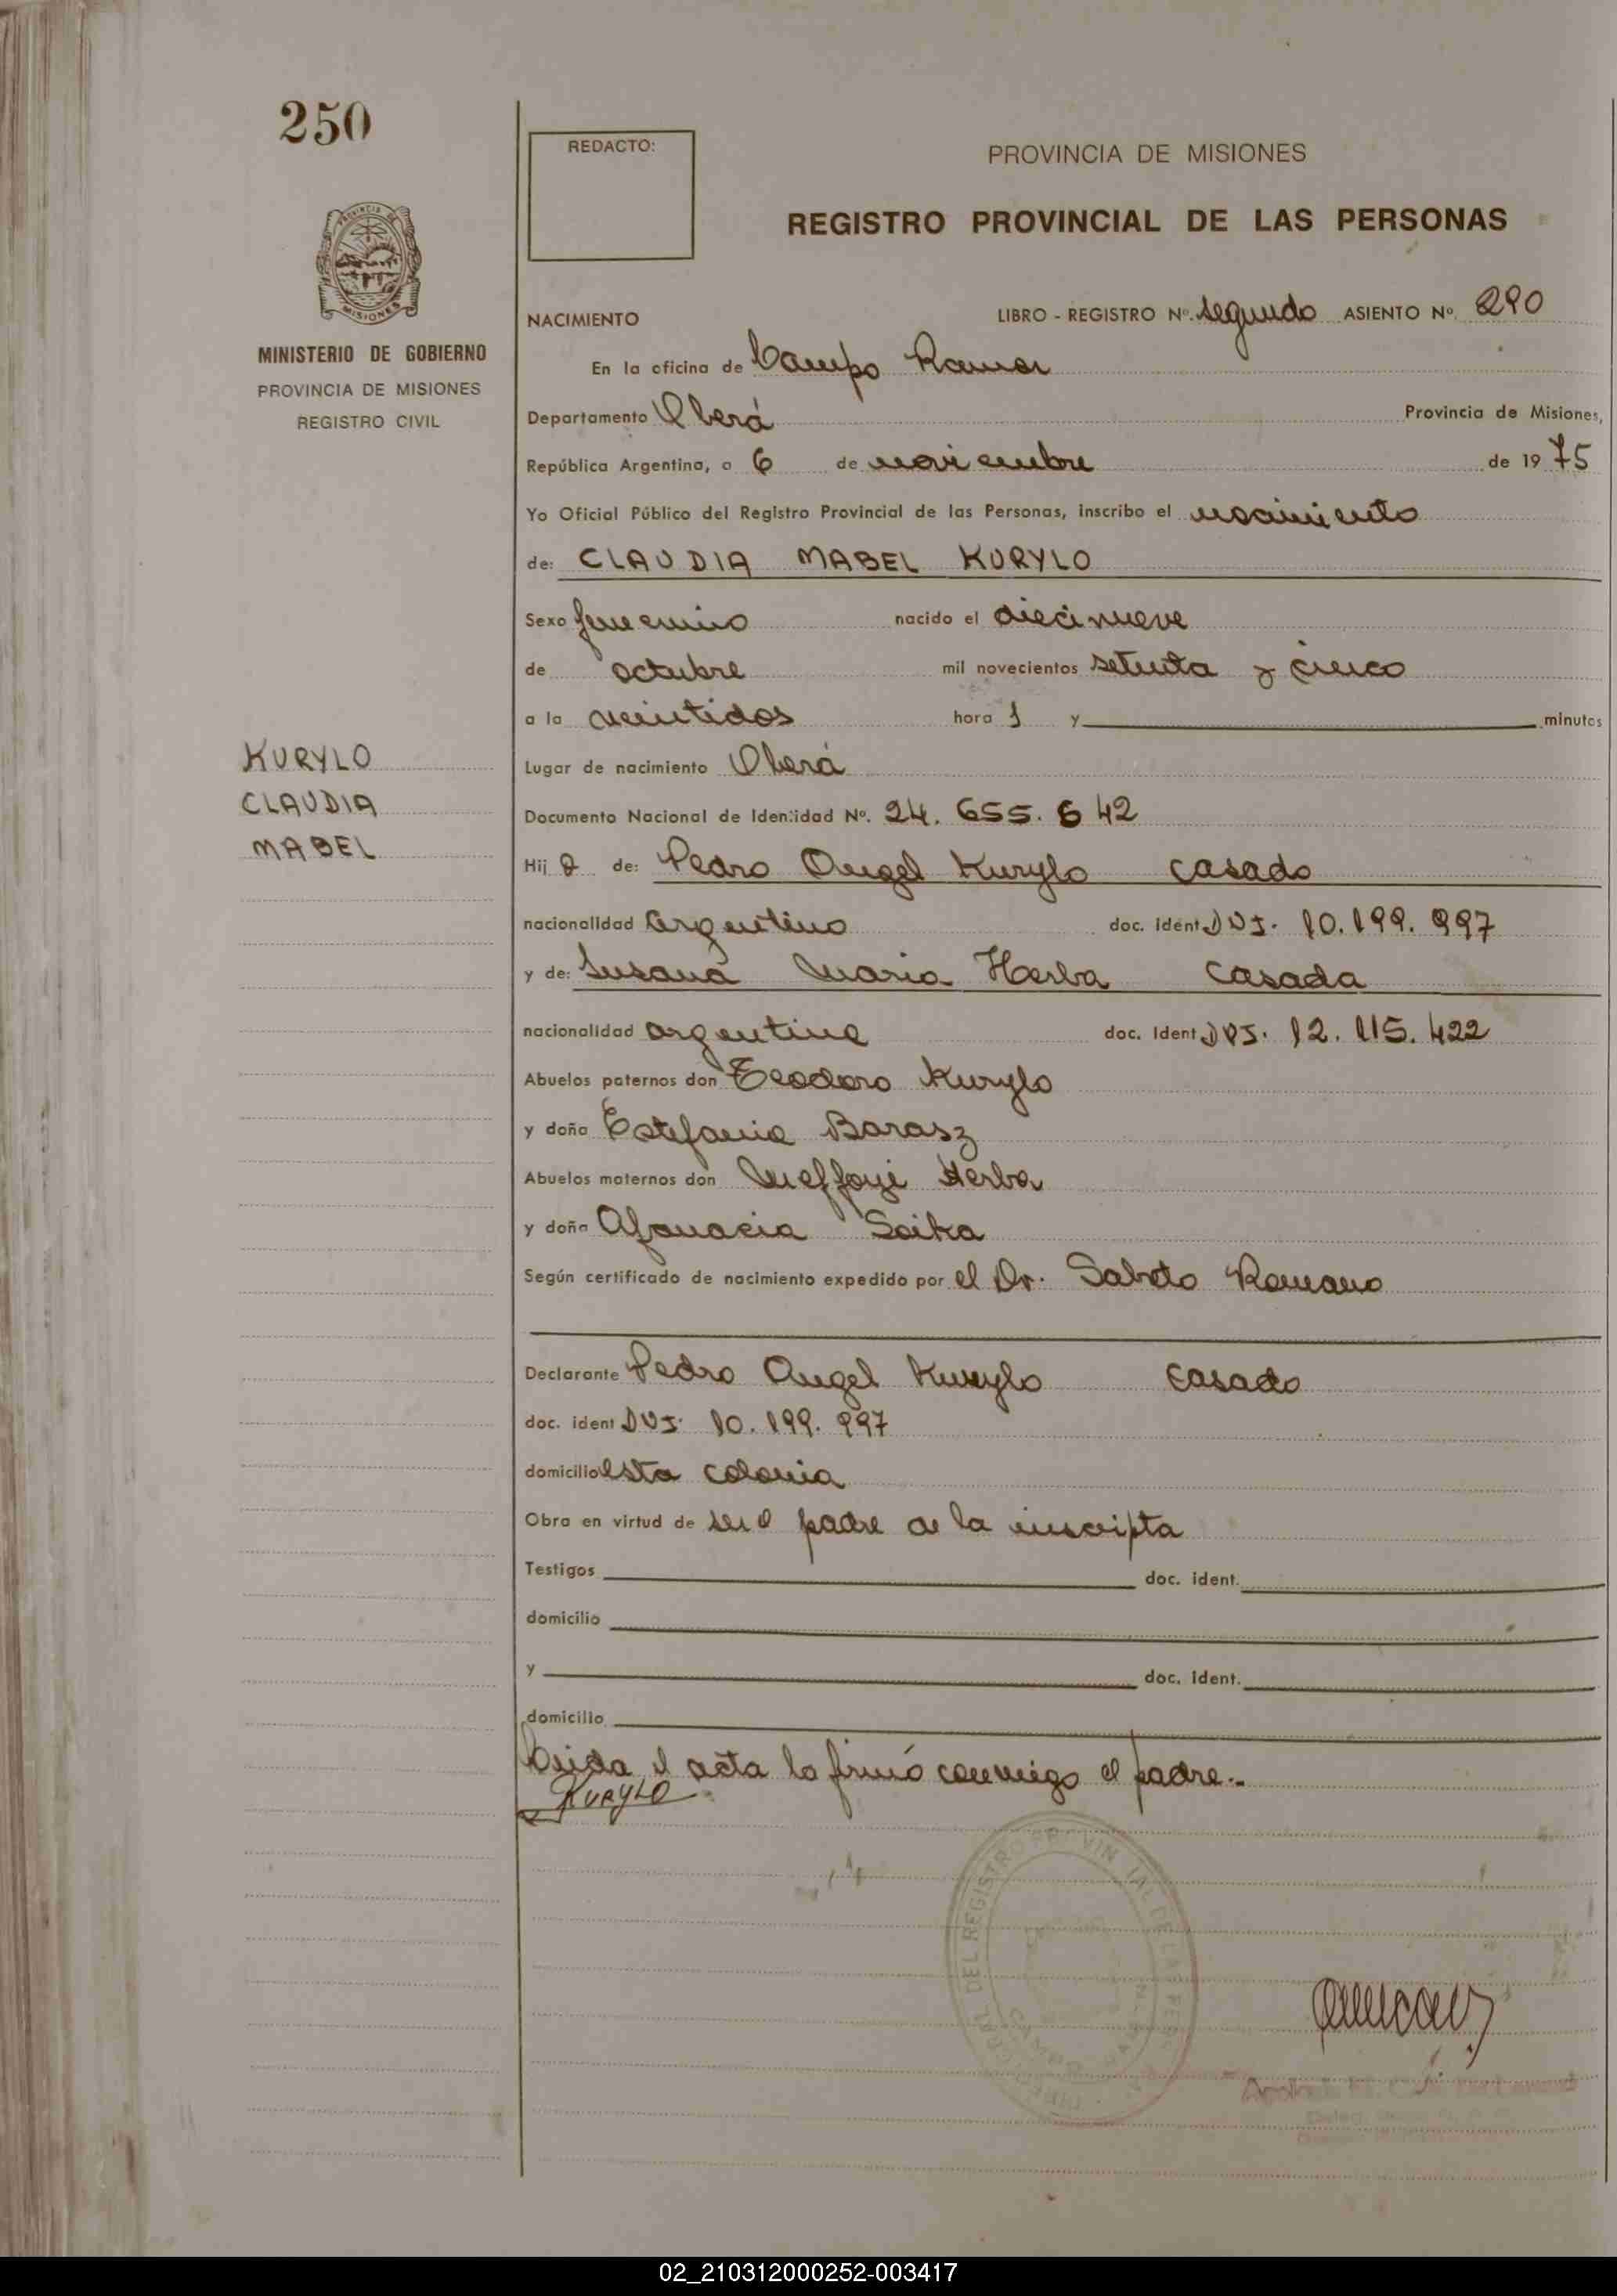 250
REDACTO:
PROVINCIA DE MISIONES
REGISTRO PROVINCIAL DE LAS PERSONAS
PROVINCIA DE
MISIONES
MINISTERIO DE GOBIERNO
PROVINCIA DE MISIONES
REGISTRO CIVIL
NACIMIENTO LIBRO - REGISTRO Nº. segundo ASIENTO Nº. 290
En la oficina de Campo Ramon
Departamento Oberá Provincia de Misiones,
República Argentina, a 6 de noviembre de 1975
Yo Oficial Público del Registro Provincial de las Personas, inscribo el nacimiento
de: CLAUDIA MABEL KURYLO
Sexo femenino nacido el diecinueve
de octubre mil novecientos setenta y cinco
a la veintidos hora s y minutos
KURYLO
CLAUDIA
MABEL
Lugar de nacimiento Oberá
Documento Nacional de Identidad Nº. 24.655.642
Hij a de: Pedro Angel Kurylo casado
nacionalidad argentino doc. ident DNI. 10.199.997
y de: Susana Maria Herba casada
nacionalidad argentina doc. ident DNI. 12.115.422
Abuelos paternos don Teodoro Kurylo
y doña Estefania Barasz
Abuelos maternos don Herba
y doña Afanacia Saika
Según certificado de nacimiento expedido por el Dr. Sabato Romano
Declarante Pedro Angel Kurylo casado
doc. ident DNI. 10.199.997
domicilio esta colonia
Obra en virtud de ser el padre de la inscripta
Testigos doc. ident.
domicilio
y doc. ident.
domicilio
Leida el acta la firmó conmigo el padre.-
KURYLO
DEL REGISTRO PROVINCIAL DE LAS PERSONAS
02_210312000252-003417